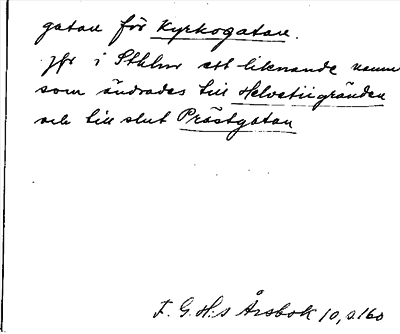 gatan för Kyrkogatan.
Jfr i Sthlm ett liknande namn
som ändrades till Helvetiigränden
och till slut Prästgatan
F. G. H:s Årsbok 10, s. 160